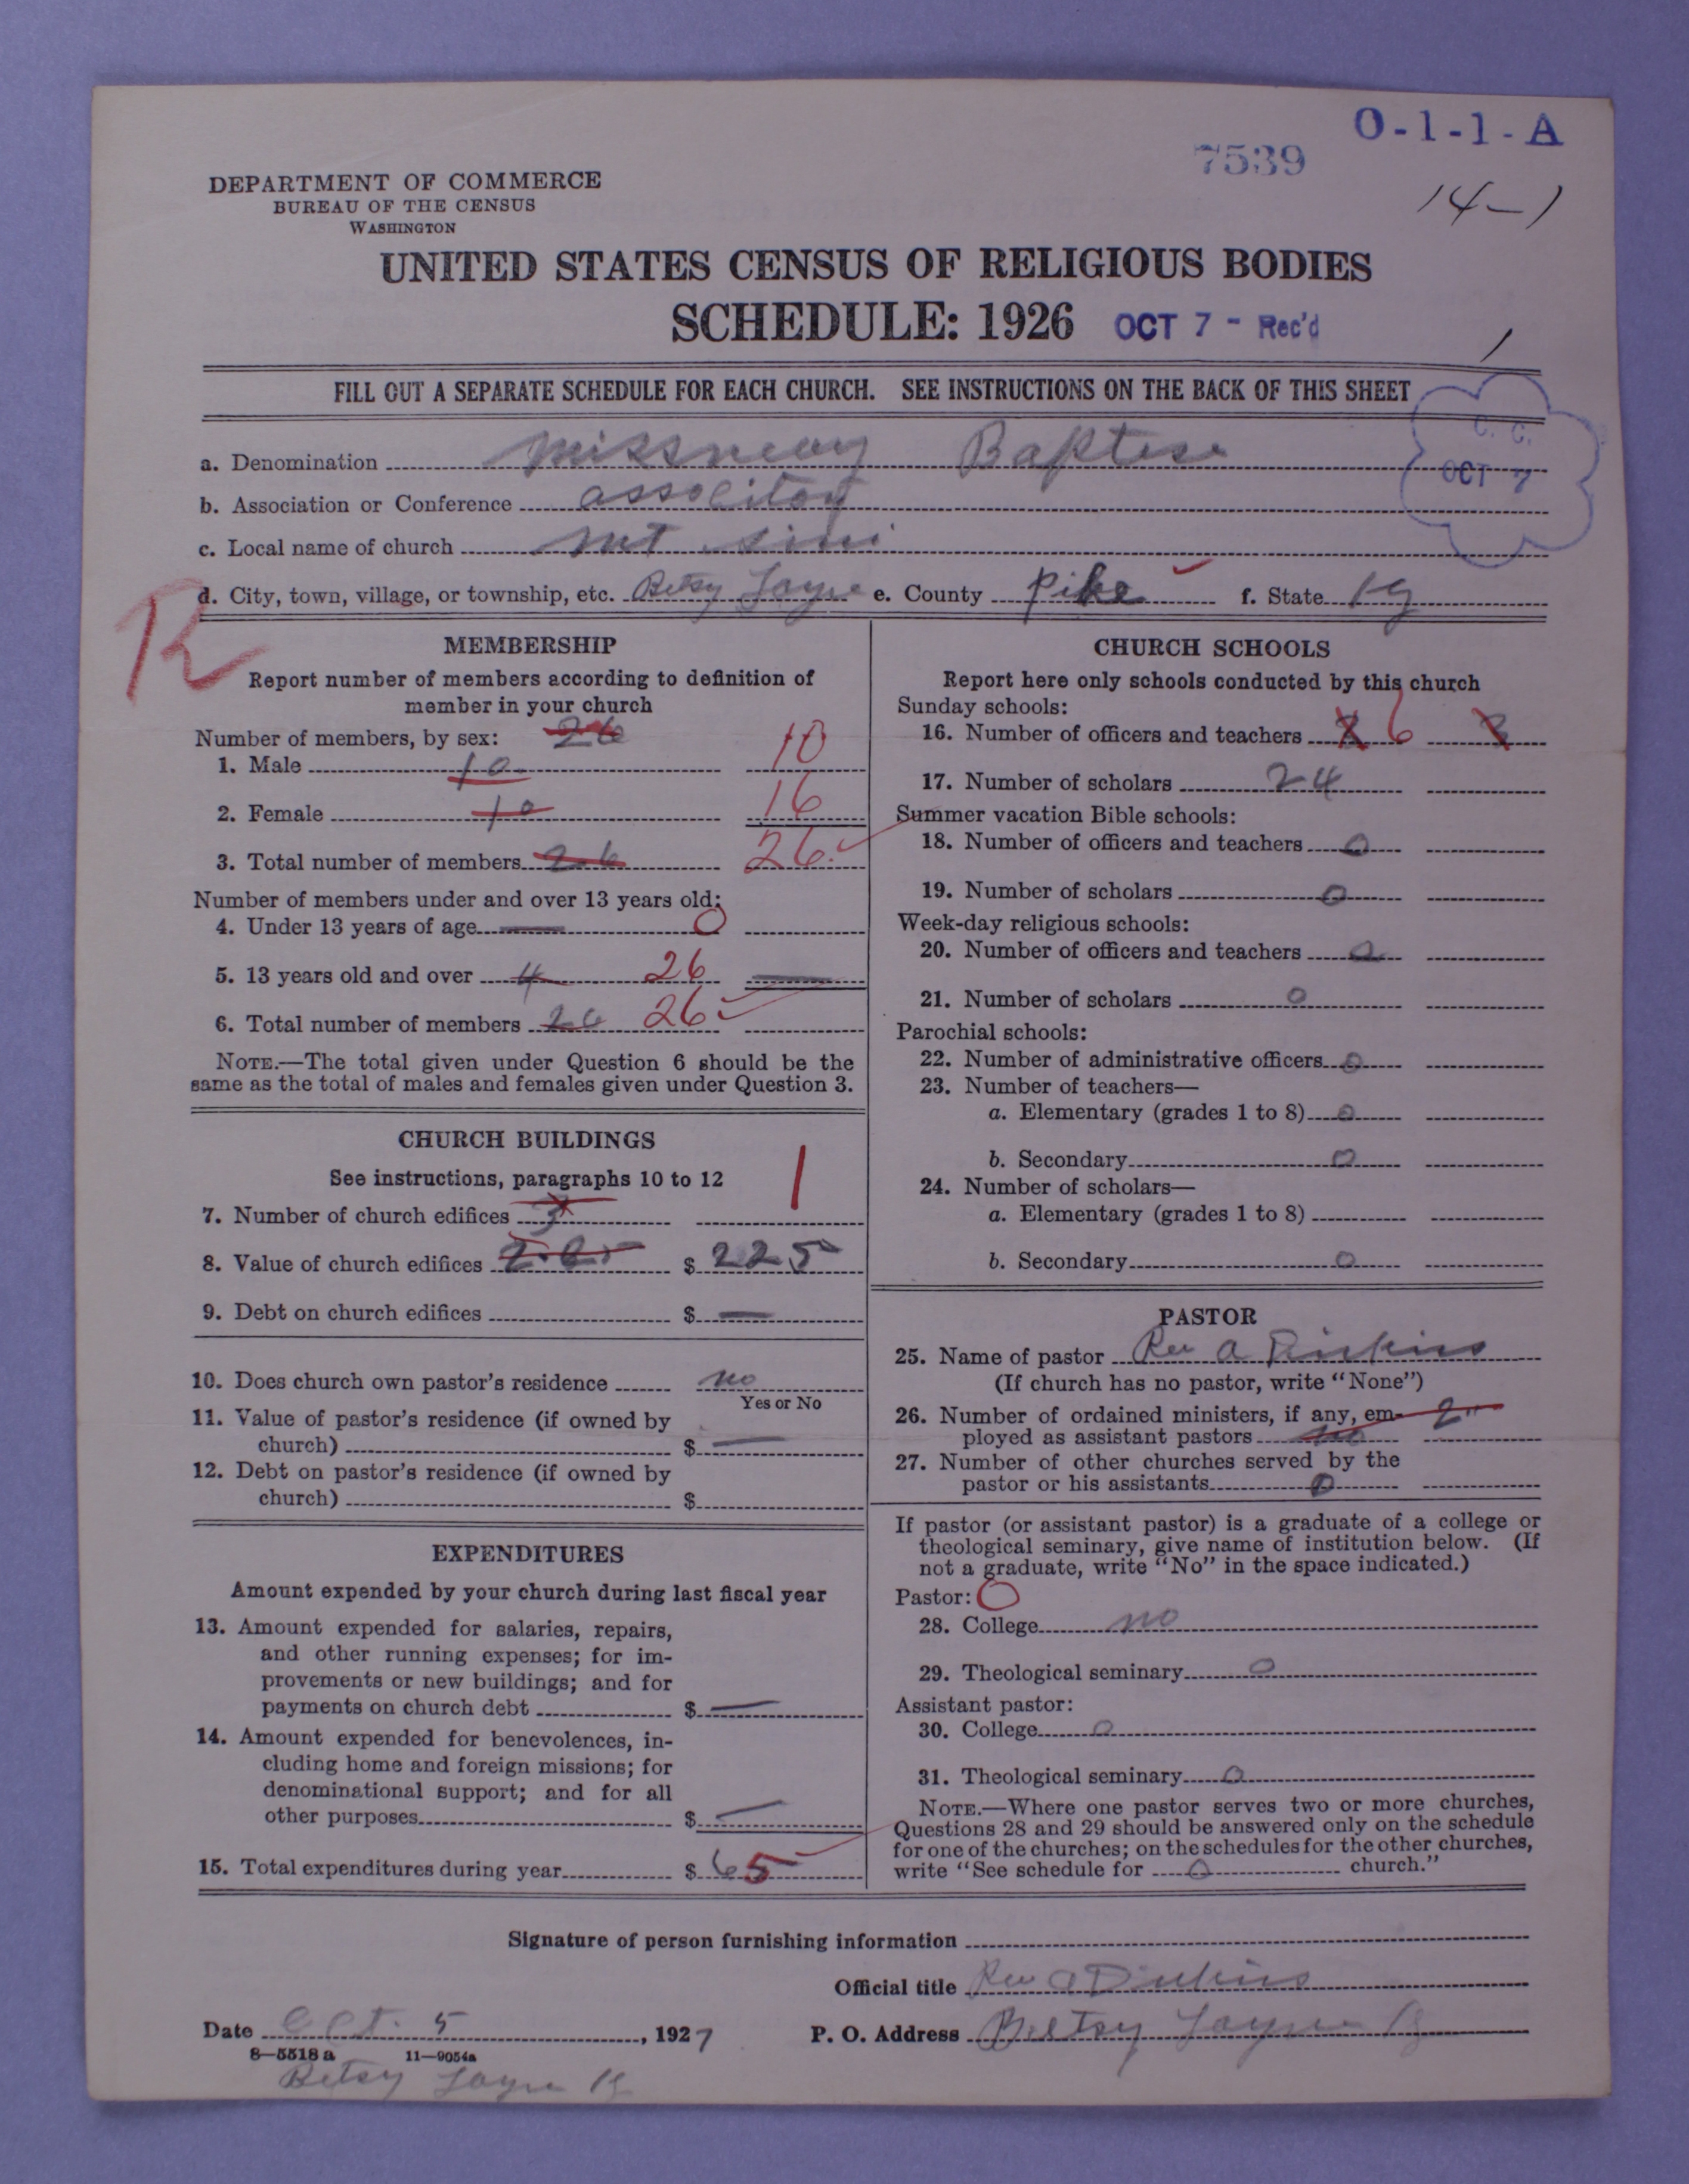 O-1-1-A
7539
14-1
DEPARTMENT OF COMMERCE
BUREAU OF THE CENSUS
WASHINGTON
UNITED STATES CENSUS OF RELIGIOUS BODIES
SCHEDULE: 1926 OCT 7 - Rec'd
1
FILL OUT A SEPARATE SCHEDULE FOR EACH CHURCH. SEE INSTRUCTIONS ON THE BACK OF THIS SHEET
C. C.
OCT 7
a. Denomination Baptese
b. Association or Conference associton
c. Local name of church mt sini
d. City, town, village, or township, etc. Betsy Layne e. County Pike f. State Ky
R
MEMBERSHIP
Report number of members according to definition of
member in your church
Number of members, by sex: 26
1. Male 10 10
2. Female 10 16
3. Total number of members 26 26
Number of members under and over 13 years old:
4. Under 13 years of age — 0
5. 13 years old and over 4 26 —
6. Total number of members 26 26
NOTE.—The total given under Question 6 should be the
same as the total of males and females given under Question 3.
CHURCH BUILDINGS
See instructions, paragraphs 10 to 12
7. Number of church edifices 3 1
8. Value of church edifices $ 225
9. Debt on church edifices $ —
10. Does church own pastor's residence no
Yes or No
11. Value of pastor's residence (if owned by
church) $ —
12. Debt on pastor's residence (if owned by
church) $
EXPENDITURES
Amount expended by your church during last fiscal year
13. Amount expended for salaries, repairs,
and other running expenses; for im-
provements or new buildings; and for
payments on church debt $ —
14. Amount expended for benevolences, in-
cluding home and foreign missions; for
denominational support; and for all
other purposes $ —
15. Total expenditures during year $ 65
CHURCH SCHOOLS
Report here only schools conducted by this church
Sunday schools:
16. Number of officers and teachers 6 3
17. Number of scholars 24
Summer vacation Bible schools:
18. Number of officers and teachers 0
19. Number of scholars 0
Week-day religious schools:
20. Number of officers and teachers 0
21. Number of scholars 0
Parochial schools:
22. Number of administrative officers 0
23. Number of teachers—
a. Elementary (grades 1 to 8) 0
b. Secondary 0
24. Number of scholars—
a. Elementary (grades 1 to 8)
b. Secondary 0
PASTOR
25. Name of pastor Rev A Dinkins
(If church has no pastor, write "None")
26. Number of ordained ministers, if any, em- 2
ployed as assistant pastors no
27. Number of other churches served by the
pastor or his assistants 0
If pastor (or assistant pastor) is a graduate of a college or
theological seminary, give name of institution below. (If
not a graduate, write "No" in the space indicated.)
Pastor: O
28. College no
29. Theological seminary 0
Assistant pastor:
30. College 0
31. Theological seminary 0
NOTE.—Where one pastor serves two or more churches,
Questions 28 and 29 should be answered only on the schedule
for one of the churches; on the schedules for the other churches,
write "See schedule for 0 church."
Signature of person furnishing information
Official title Rev A Dinkins
Date Oct. 5, 1927 P. O. Address Betsy Layne Ky
8—5518 a 11—9054a
Betsy Layne Ky